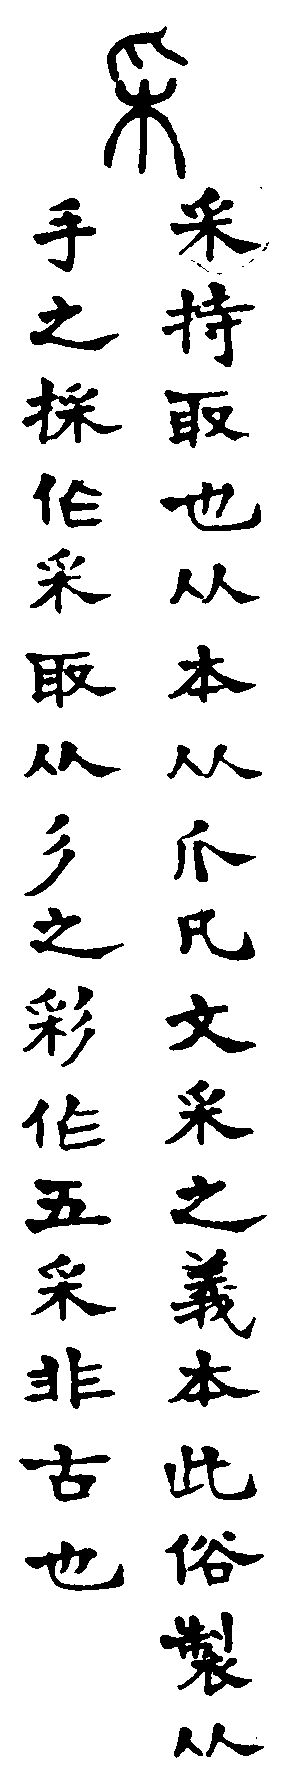 采
采持取也从本从爪凡文采之義本此俗製从
手之採作采取从彡之彩作五采非古也